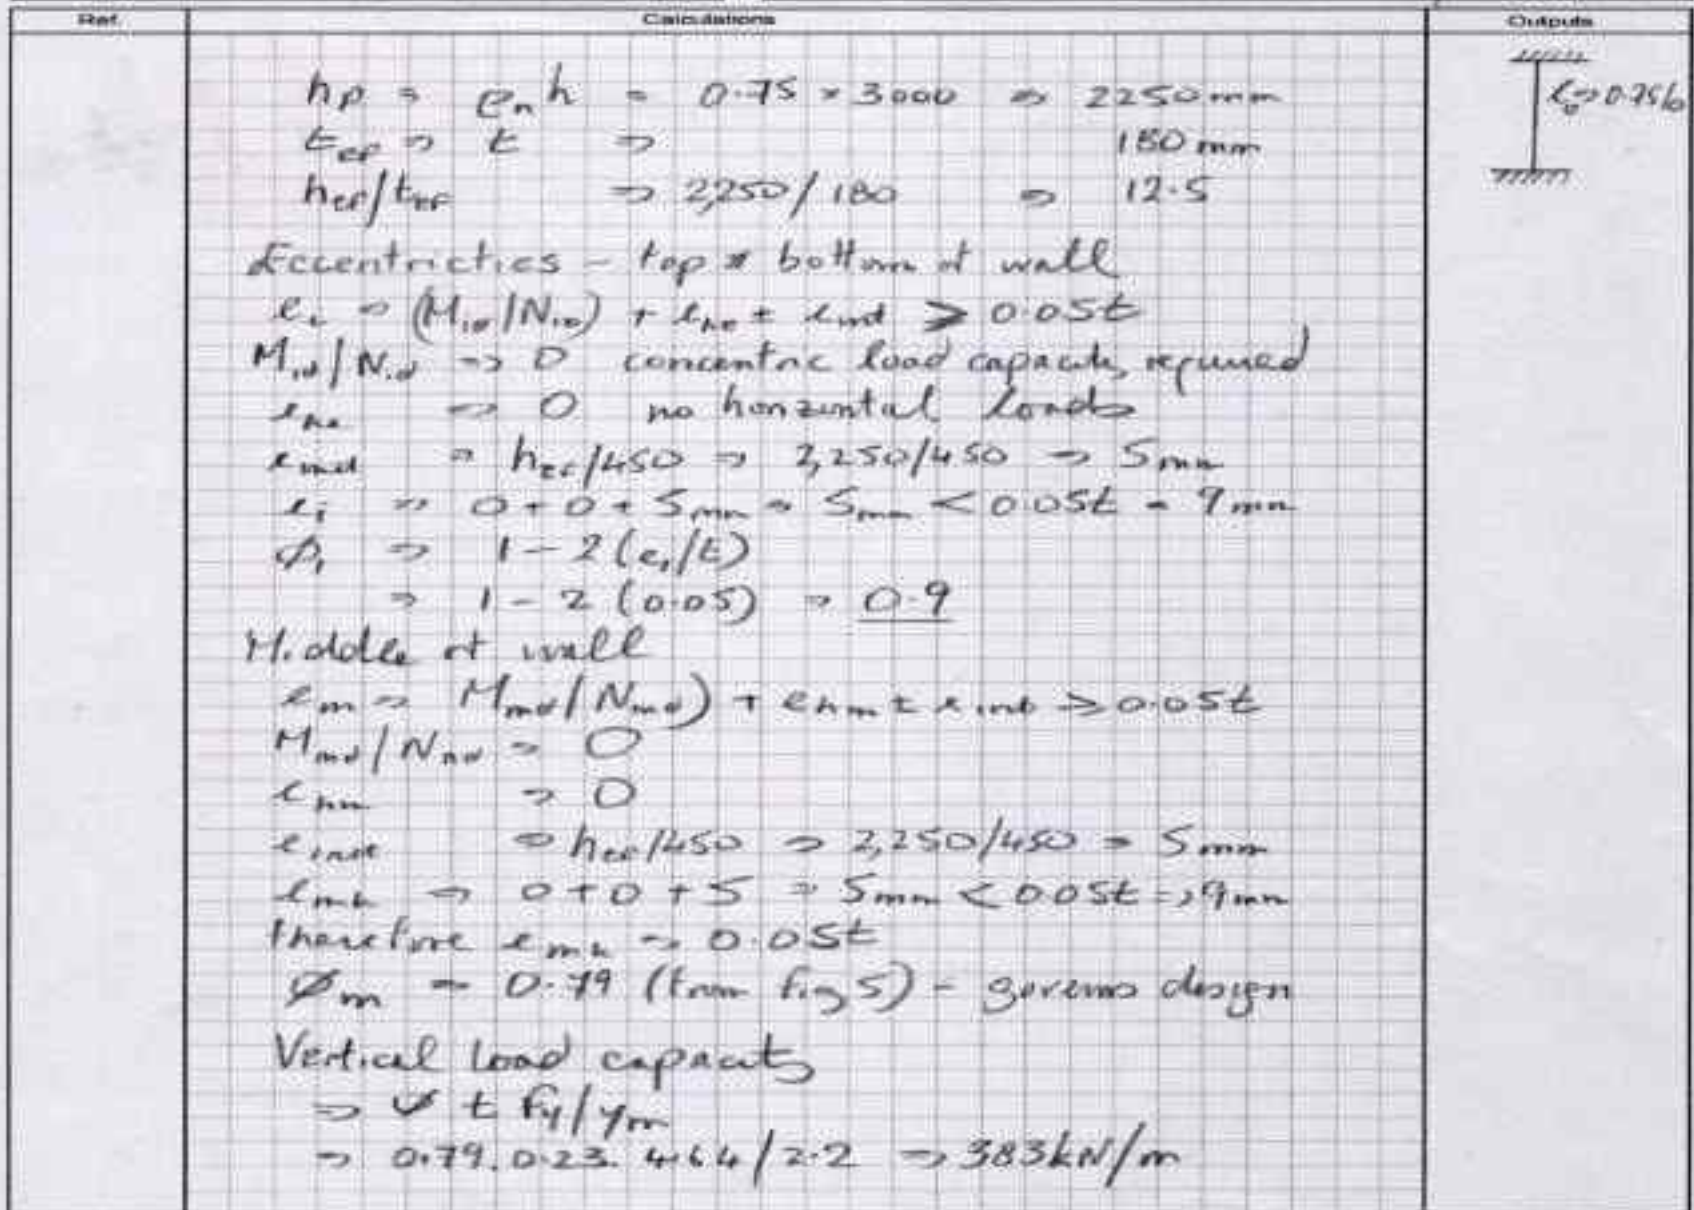 Ref. Calculations Outputs
hp = ρn h = 0.75 × 3000 ⇒ 2250mm
tef ⇒ t ⇒ 180 mm
hef/tef ⇒ 2,250/180 ⇒ 12.5
l0 ⇒ 0.75l0
Eccentricties – top & bottom of wall
ei = (Mid/Nid) + ehe ± einit ≥ 0.05t
Mid/Nid ⇒ 0 concentric load capacity required
ehe ⇒ 0 no horizontal loads
einit = hef/450 ⇒ 2,250/450 ⇒ 5mm
ei = 0 + 0 + 5mm = 5mm < 0.05t = 9mm
Φi ⇒ 1 – 2(ei/t)
⇒ 1 – 2 (0.05) ⇒ 0.9
Middle of wall
em ⇒ Mmd/Nmd) + ehm ± einit ≥ 0.05t
Mmd/Nmd = 0
ehm ⇒ 0
einit ⇒ hef/450 ⇒ 2,250/450 = 5mm
emk ⇒ 0 + 0 + 5 = 5mm < 0.05t ⇒ 9mm
therefore emk ⇒ 0.05t
Φm = 0.79 (from fig 5) – governs design
Vertical load capacity
⇒ Φ t fy/ym
⇒ 0.79. 0.23. 4.64/2.2 ⇒ 383kN/m